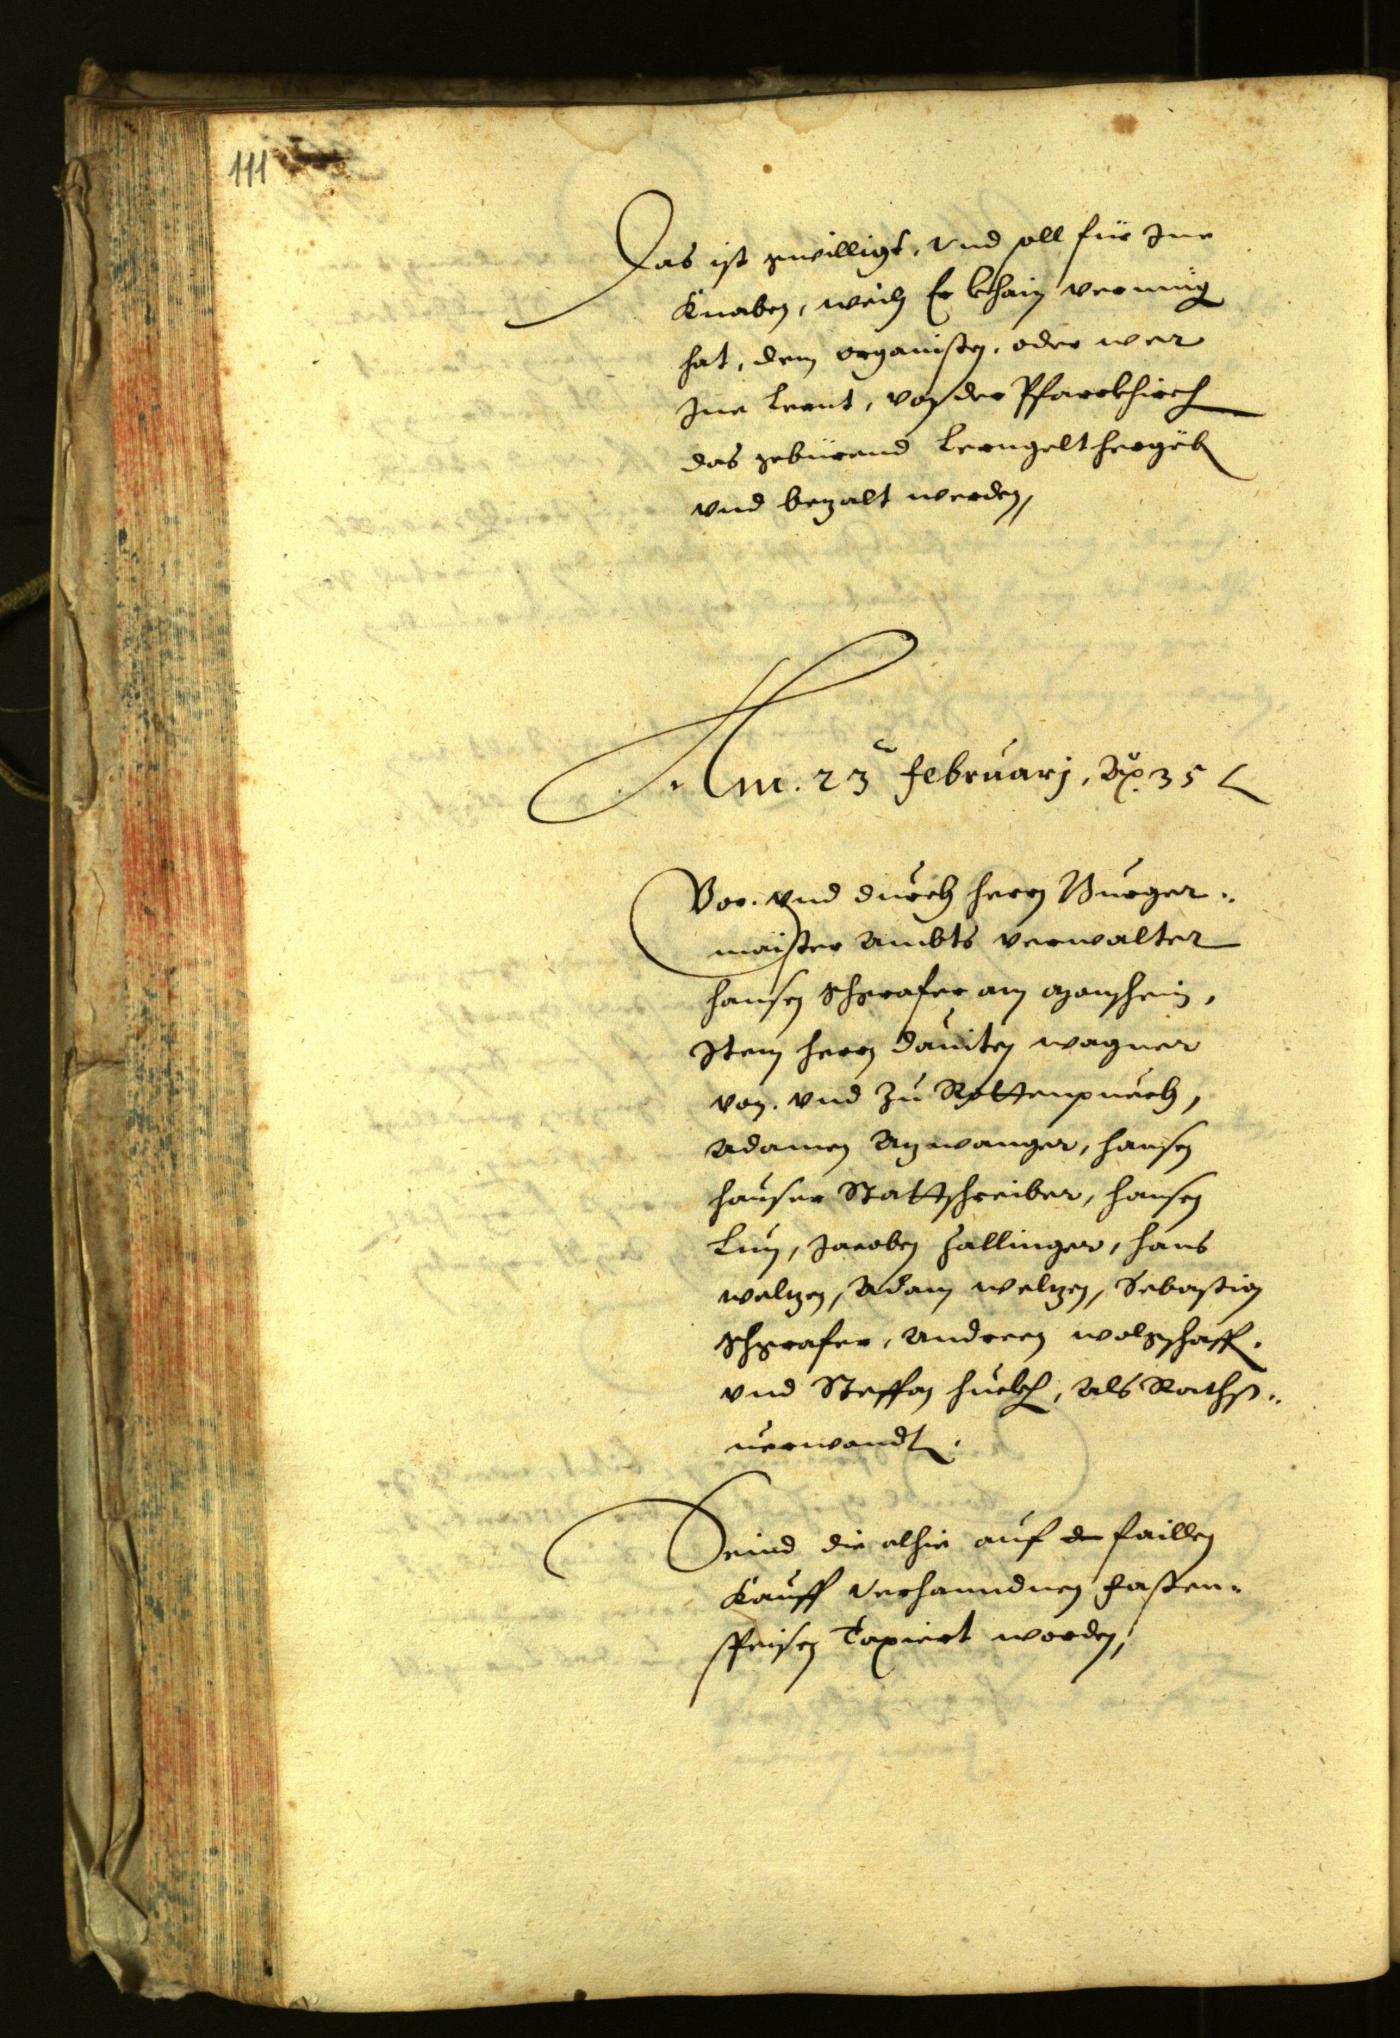 111
Das ist gewilligt, vnd soll für Ine
Knaben, weil Er khain vermüg
hat, dem organisten, oder wer
Ine lernt, von der Pfarrkhirch
das gebürend Lerngelt hergeben
vnd bezalt werden,
Am. 23 februarj, Ao. 35
Vor. vnd durch herrn Burger¬
maister Ambts verwalter
hansen Schgrafer am
Item herrn Dauiten wagner
von. vnd zu Rottenpuech,
Adamen Anwanger, hansen
hauser Stattschreiber, hansen
Lun, Jacoben Zallinger, hans
welzen, Adam welzen, Sebastian
Schgrafer, Andreen wolgschaff,
vnd Steffan huebß, als Raths¬
uerwandt.
Seind die alhie auf den faillen
Kauff verhanndnen fasten¬
speisen Taxiert worden,